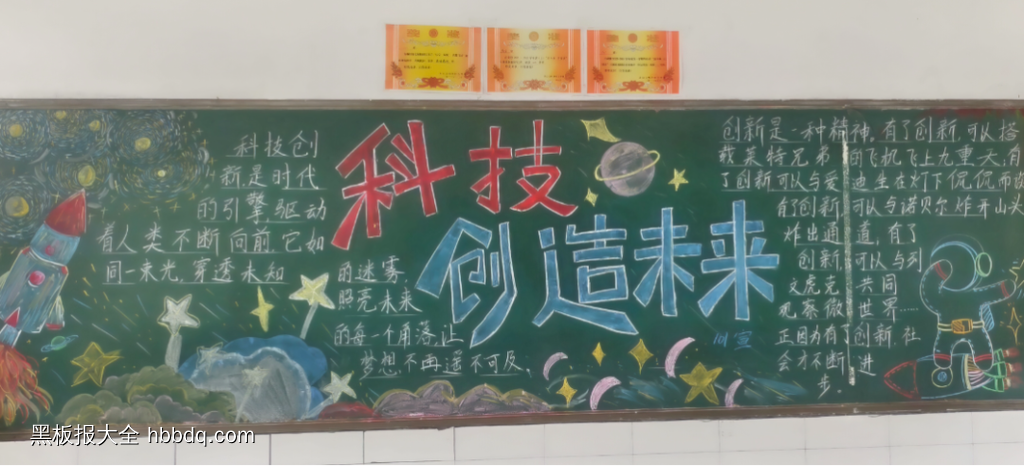 科技
创造未来
科技创
新是时代
的引擎驱动
着人类不断向前它如
同一束光,穿透未知
的迷雾,
照亮未来
的每一个角落,让
梦想不再遥不可及、
创新是一种精神,有了创新,可以搭
载莱特兄弟的飞机飞上九重天,有
了创新可以与爱迪生在灯下侃侃而谈
有了创新,可以与诺贝尔炸开山头
炸出通道,有了
创新,可以与列
文虎克共同
观察微世界……
正因为有了创新,社
会才不断进
步。
黑板报大全 hbbdq.com